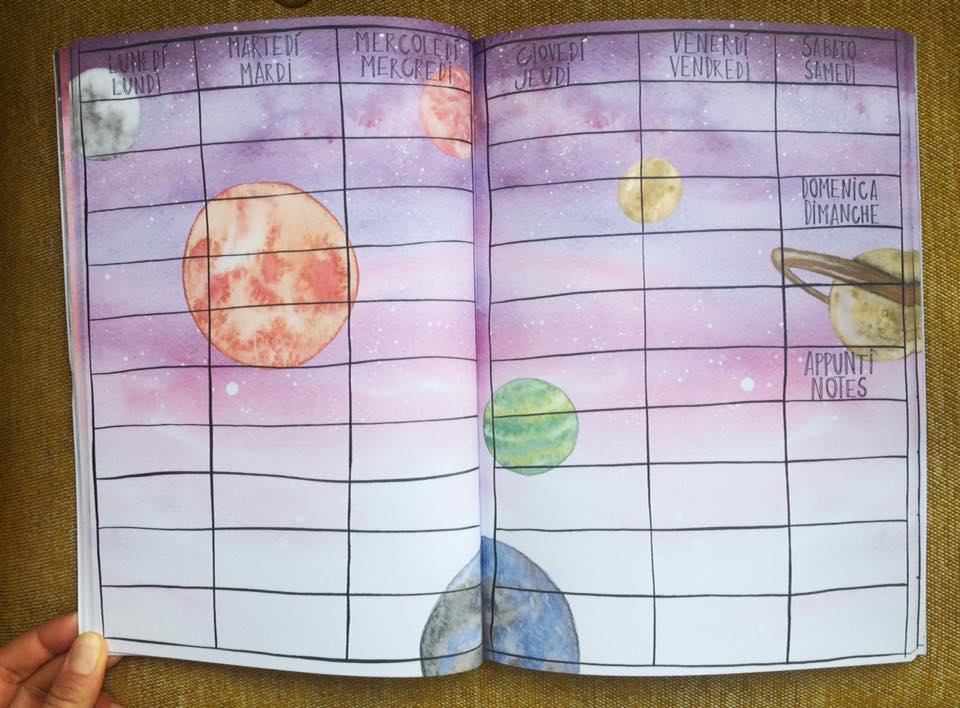 LUNEDÍ
LUNDI
MARTEDÍ
MARDI
MERCOLEDÍ
MERCREDI
GIOVEDÍ
JEUDI
VENERDÍ
VENDREDI
SABATO
SAMEDI
DOMENICA
DIMANCHE
APPUNTI
NOTES